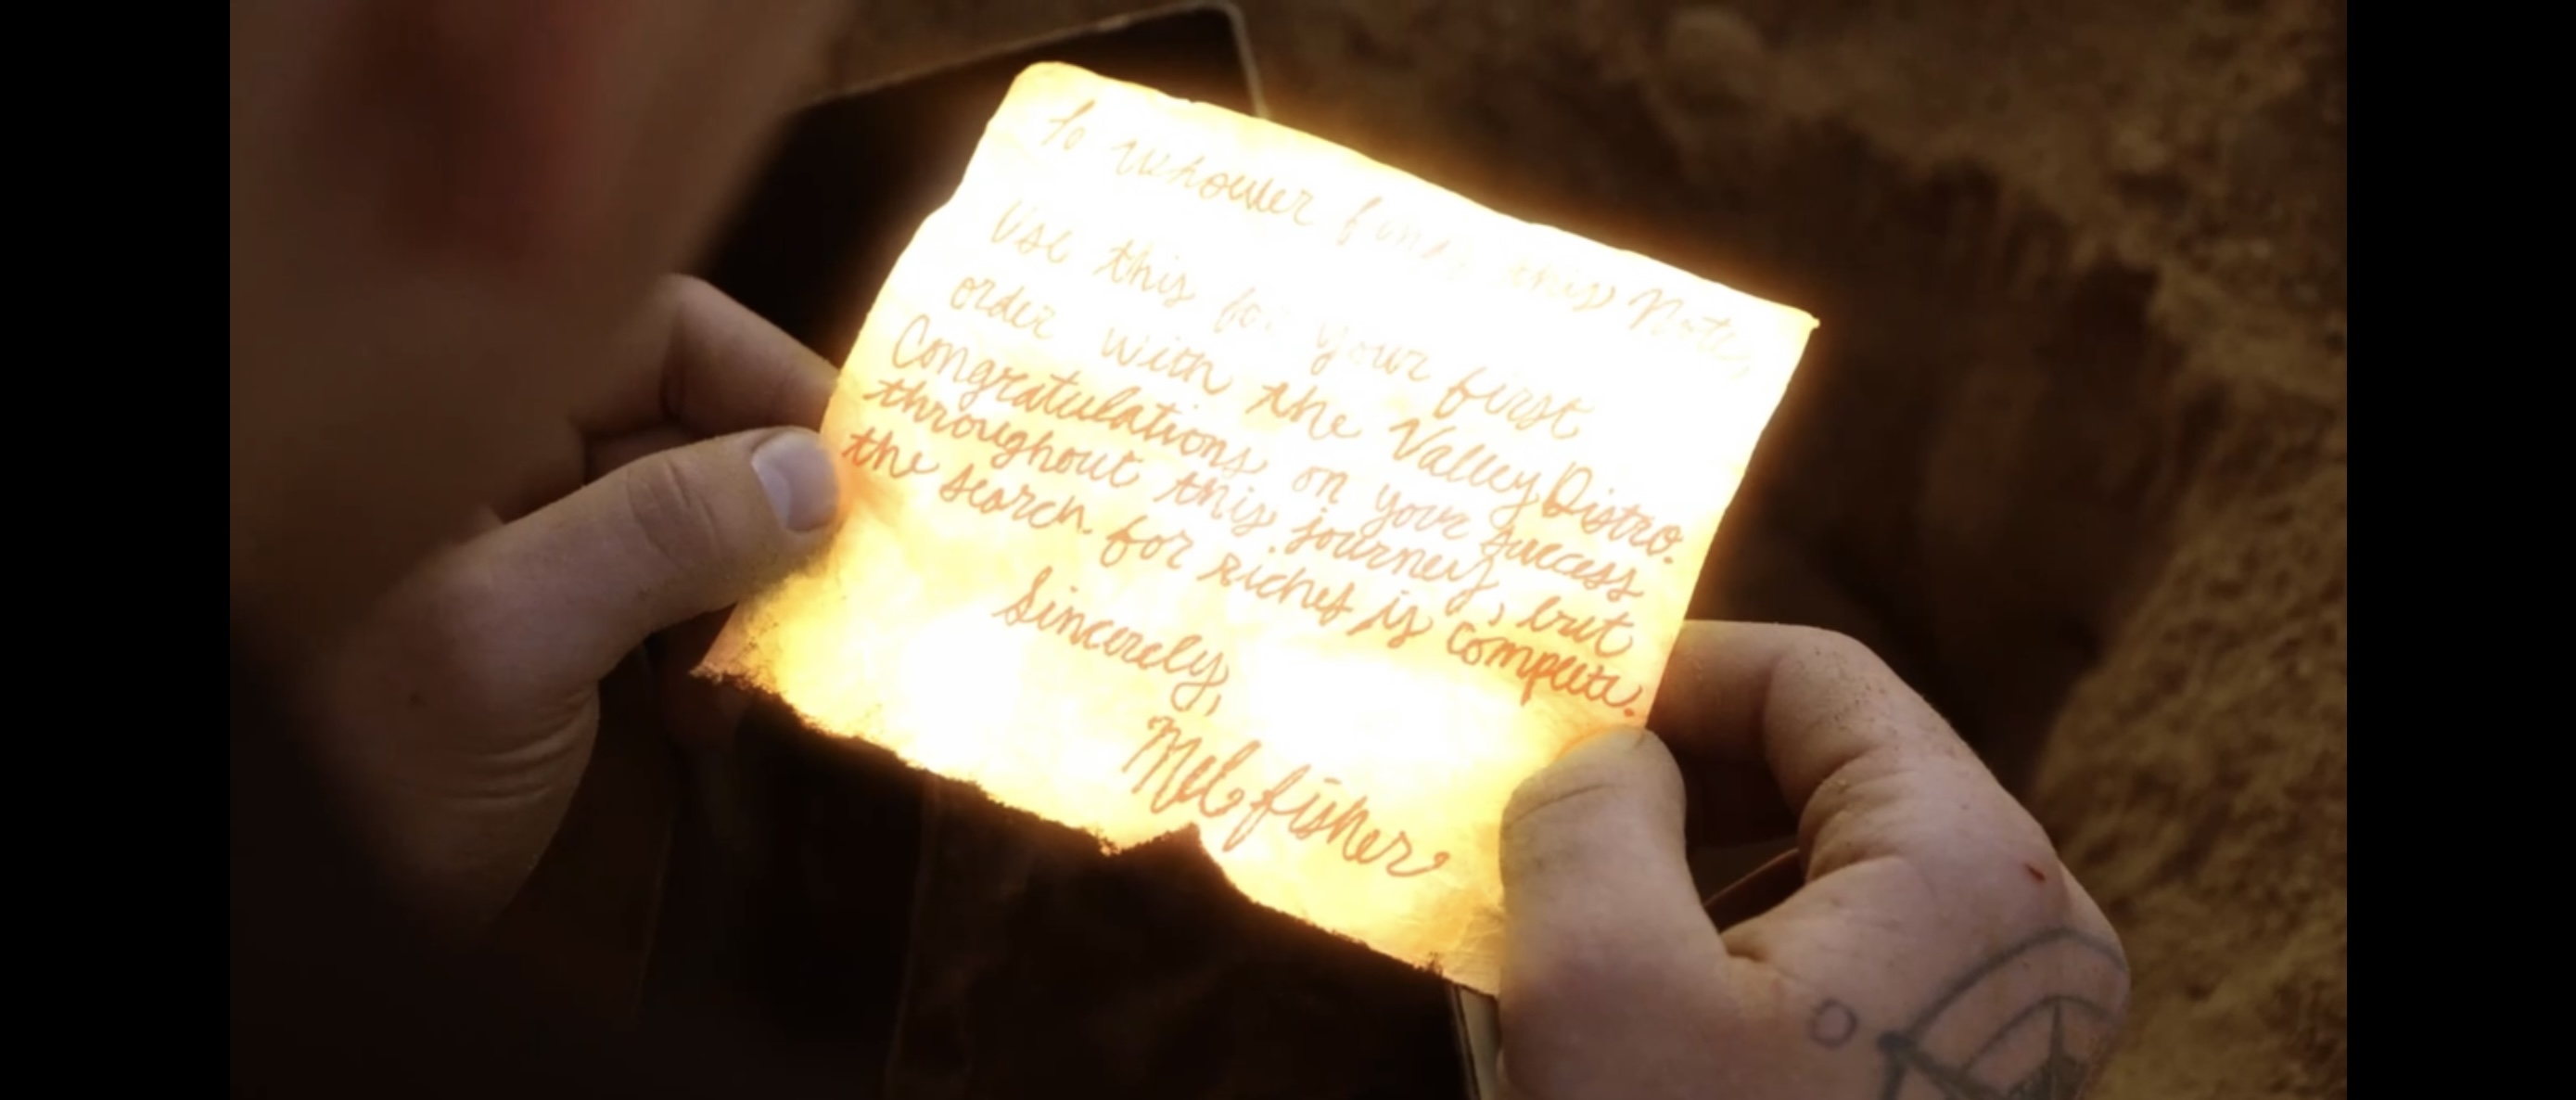 To whoever finds this Note,
Use this for your first
order with the Valley Distro.
Congratulations on your success
throughout this journey, but
the search for riches is complete.
Sincerely,
Mel fisher